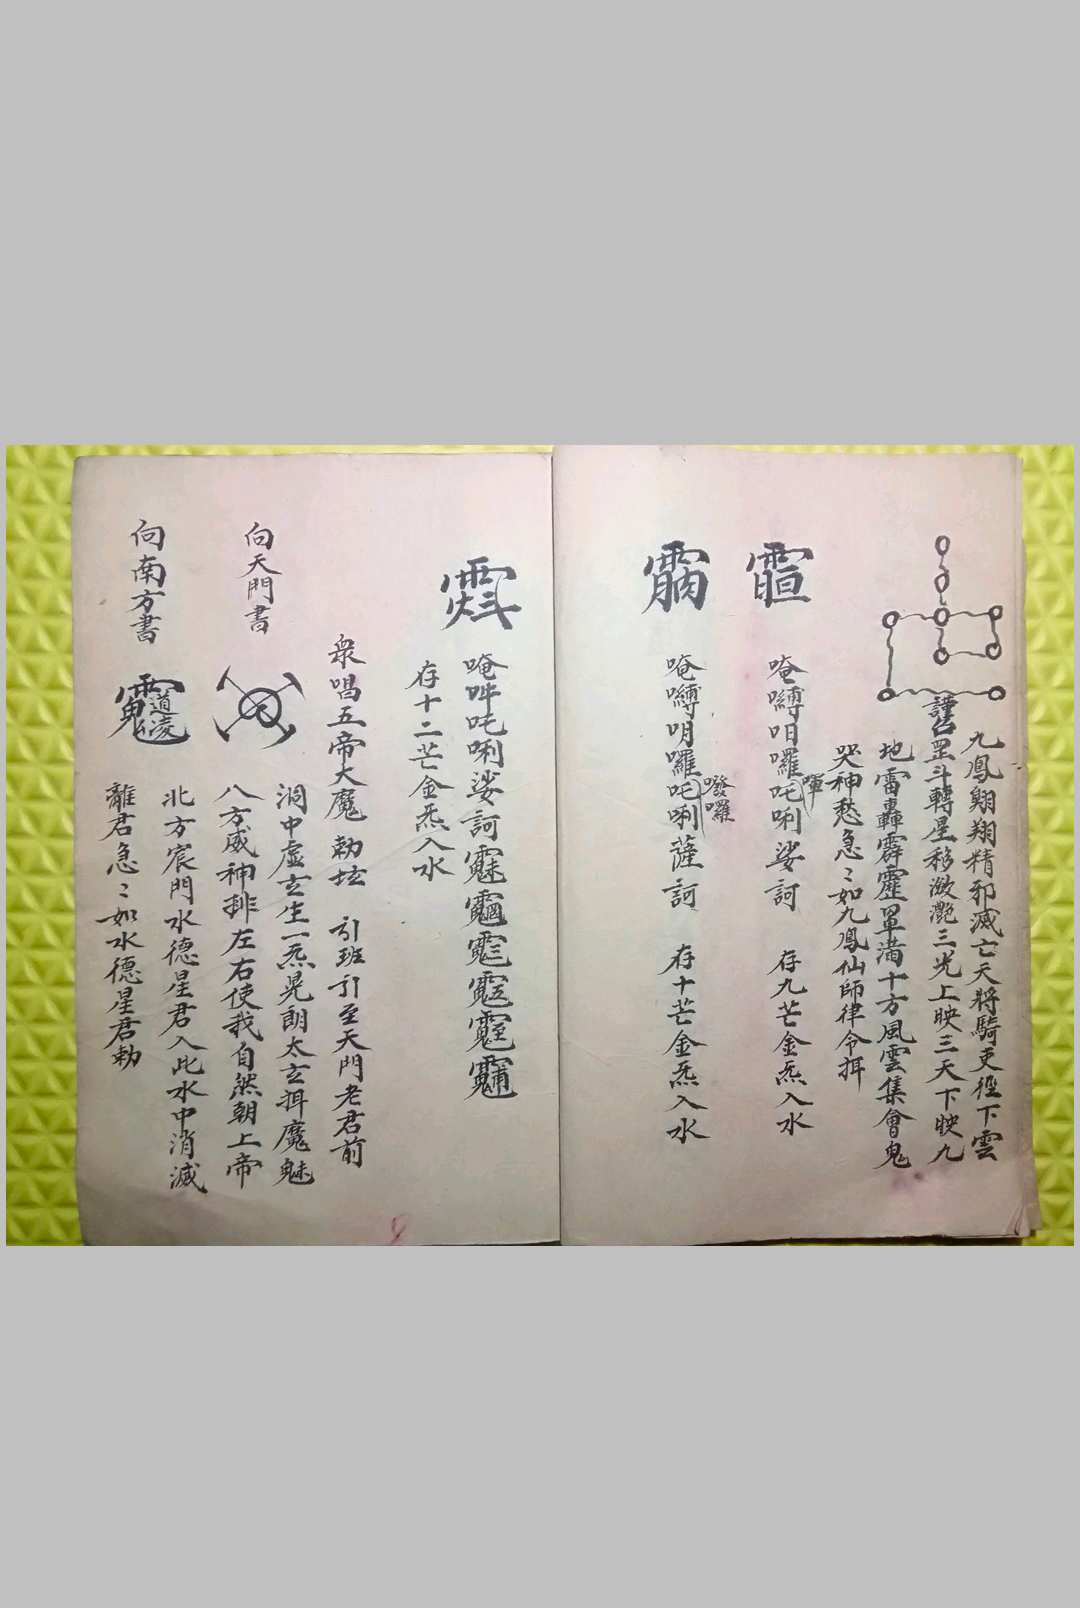 九鳳翱翔精邪滅亡天將騎吏徑下雲
罡斗轉星移瀲灧三光上映三天下映九
地雷轟霹靂罩滿十方風雲集會鬼
哭神愁急〻如九鳳仙師律令揖
唵嚩吅囉吒唎娑訶 存九芒金炁入水
唵嚩明囉吒唎薩訶 存十芒金炁入水
噬囉
唵吽吒唎娑訶
存十二芒金炁入水
衆唱五帝大魔 勅坛 引班引至天門老君前
向天門書
洞中虛玄生一炁晃朗太玄揖魔魅
八方威神排左右使我自然朝上帝
向南方書
道凌
北方宸門水德星君入此水中消滅
離君急〻如水德星君勅